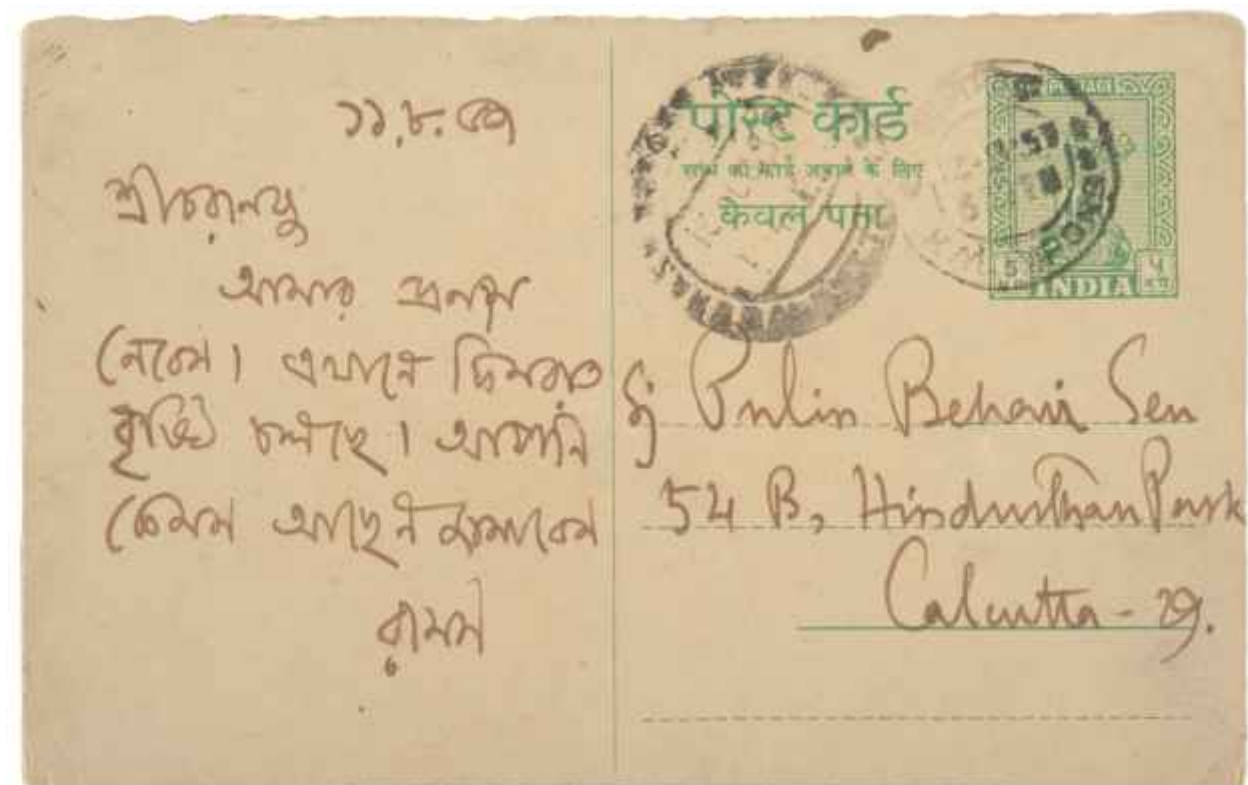 ১১.৮.৫৯
শ্রীচরণেষু
আমার প্রণাম
নেবেন। এখানে দিনরাত
বৃষ্টি চলছে। আপনি
কেমন আছেন জানাবেন
पोस्ट कार्ड
के लिए
केवल पता
5 INDIA
Pulin Behari Sen
54 B, Hindusthan Park
Calcutta - 29.